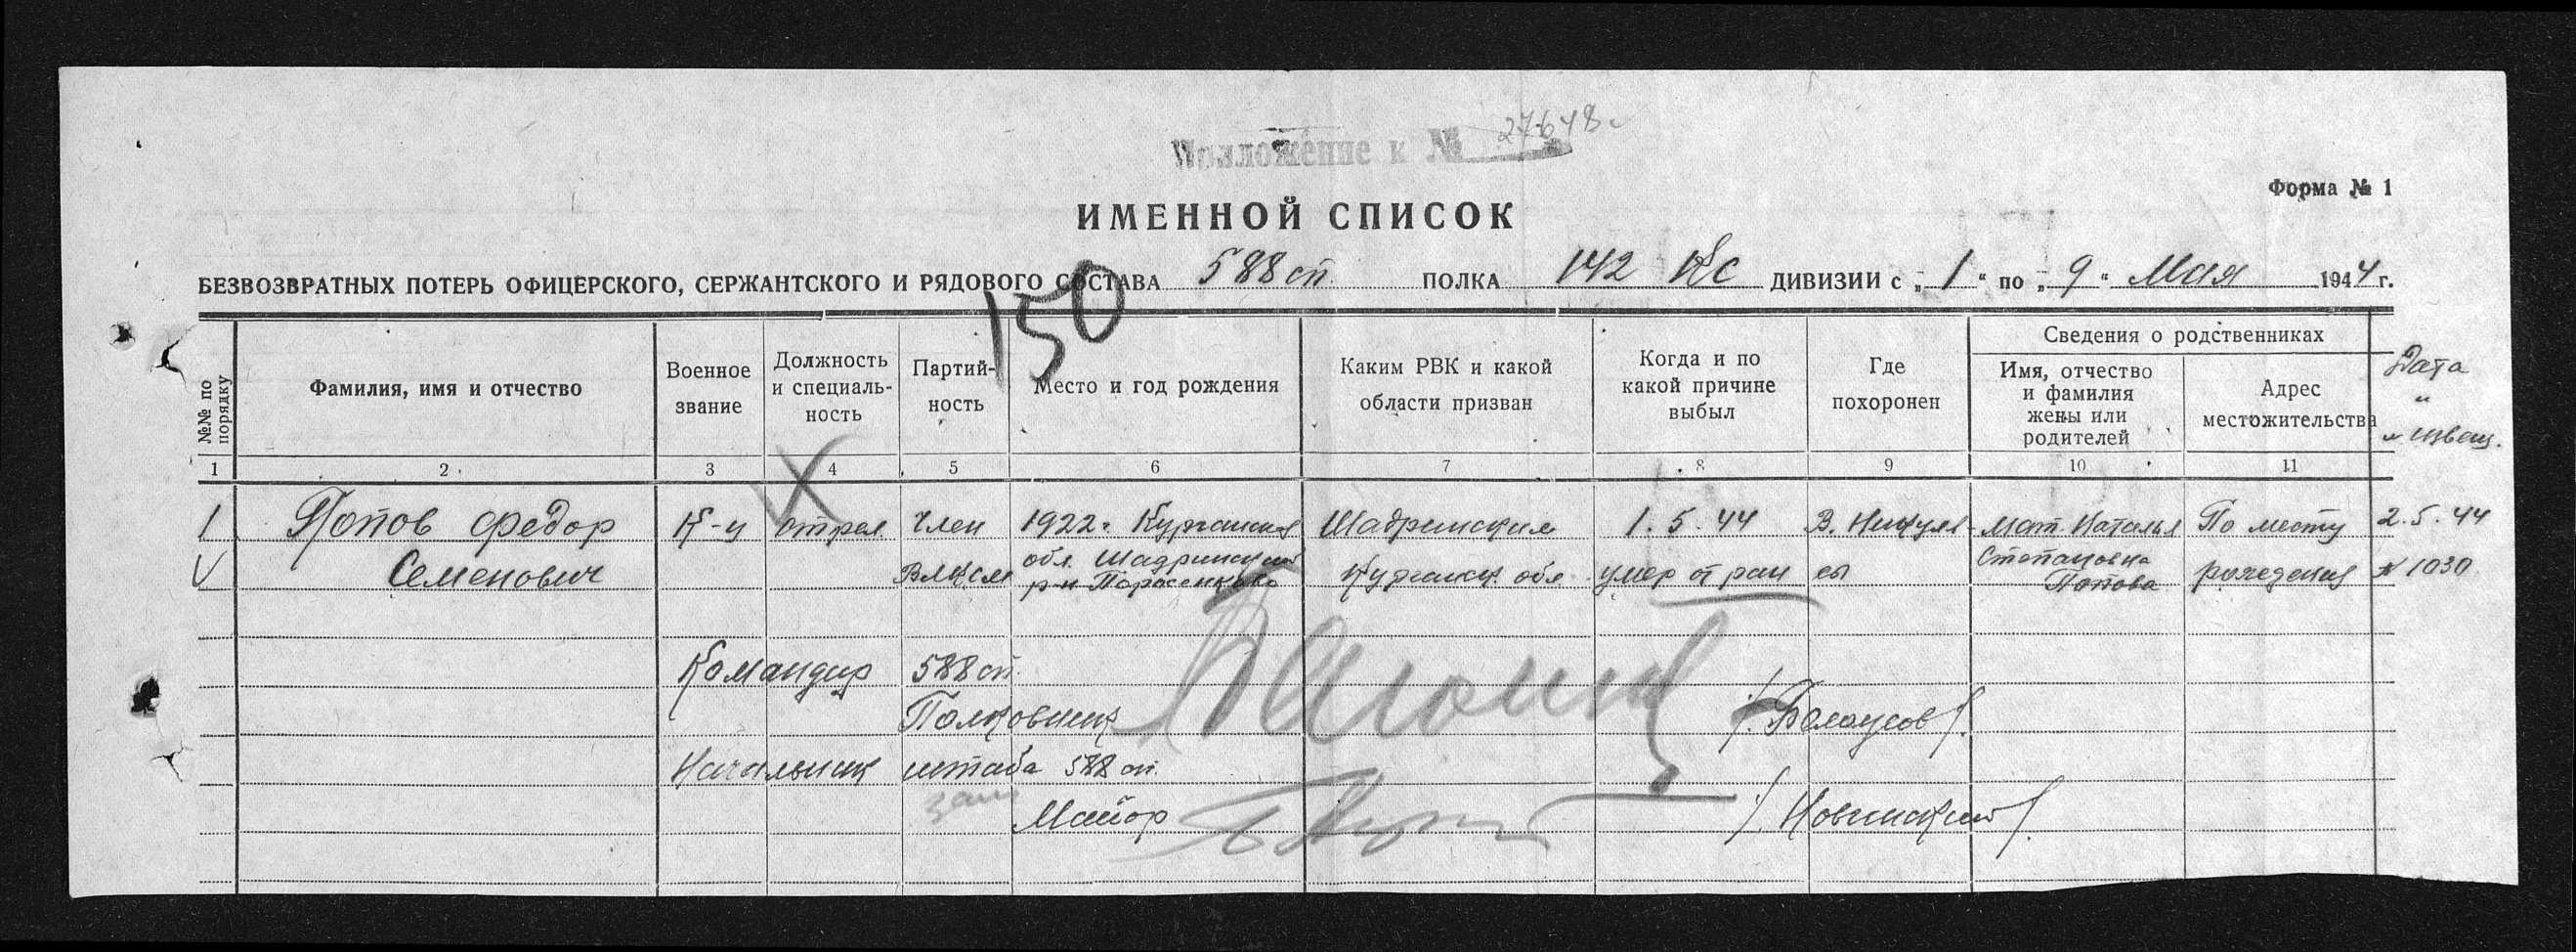 Приложение к № 27648с
Форма № 1
ИМЕННОЙ СПИСОК
БЕЗВОЗВРАТНЫХ ПОТЕРЬ ОФИЦЕРСКОГО, СЕРЖАНТСКОГО И РЯДОВОГО СОСТАВА 588 сп. ПОЛКА 142 КС ДИВИЗИИ с „1“ по „9“ Мая 1944 г.
150
№№ по порядку
Фамилия, имя и отчество
Военное звание
Должность и специаль-
ность
Партий-
ность
Место и год рождения
Каким РВК и какой
области призван
Когда и по
какой причине
выбыл
Где
похоронен
Сведения о родственниках
Имя, отчество
и фамилия
жены или
родителей
Адрес
местожительства
Дата
и
№ извещ.
1 2 3 4 5 6 7 8 9 10 11
1 Попов Федор К-ц стрел. Член 1922 г. Курганская Шадринским 1.5.44 В. Никуля- Мат. Наталья По месту 2.5.44
V Семенович ВЛКСМ обл. Шадринский Курганск. обл. умер от ран сы Степановна рождения № 1030
р-н Попова
Командир 588 сп.
Полковник /Белоусов/.
Начальник штаба 588 сп.
зам
Майор /Новинский/.